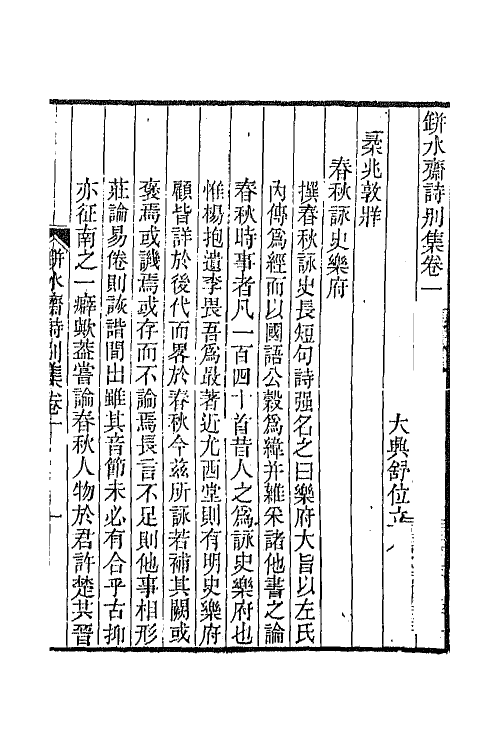 缾水齋詩別集卷一
大興舒位立人
桼兆敦牂
春秋詠史樂府
撰春秋詠史長短句詩强名之曰樂府大旨以左氏
內傳爲經而以國語公穀爲緯并雜采諸他書之論
春秋時事者凡一百四十首昔人之爲詠史樂府也
惟楊抱遺李畏吾爲最著近尤西堂則有明史樂府
顧皆詳於後代而畧於春秋今兹所詠若補其闕或
褒焉或譏焉或存而不論焉長言不足則他事相形
莊論易倦則詼諧間出雖其音節未必有合乎古抑
亦征南之一癖歟蓋嘗論春秋人物於君許楚莊晉
缾水齋詩別集卷一
一